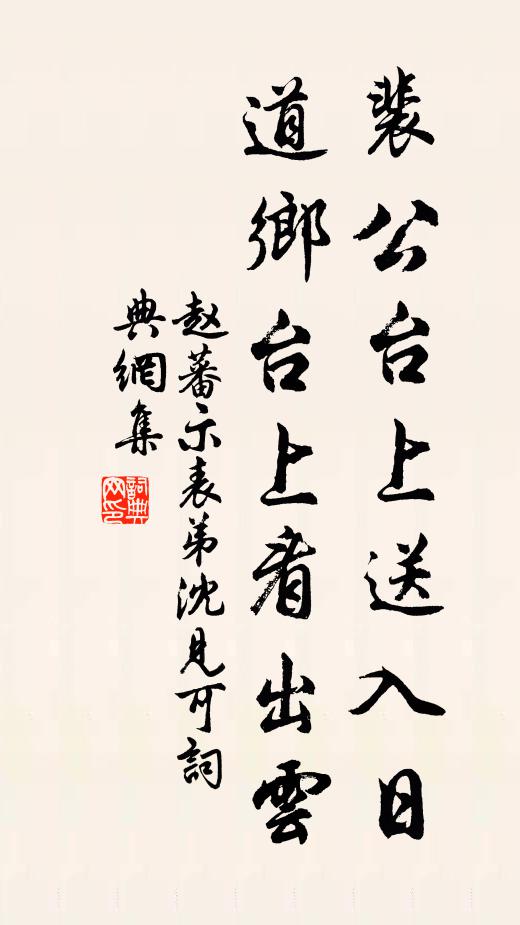 裴公台上送入日
道鄉台上看出雲
赵蕃示表弟沈見可詞
典網集
詞典网印